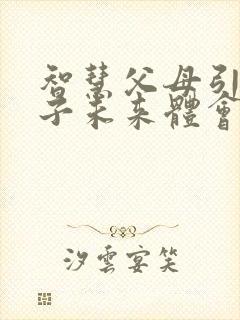 智慧父母引
子未来體會
汐雲宴笑